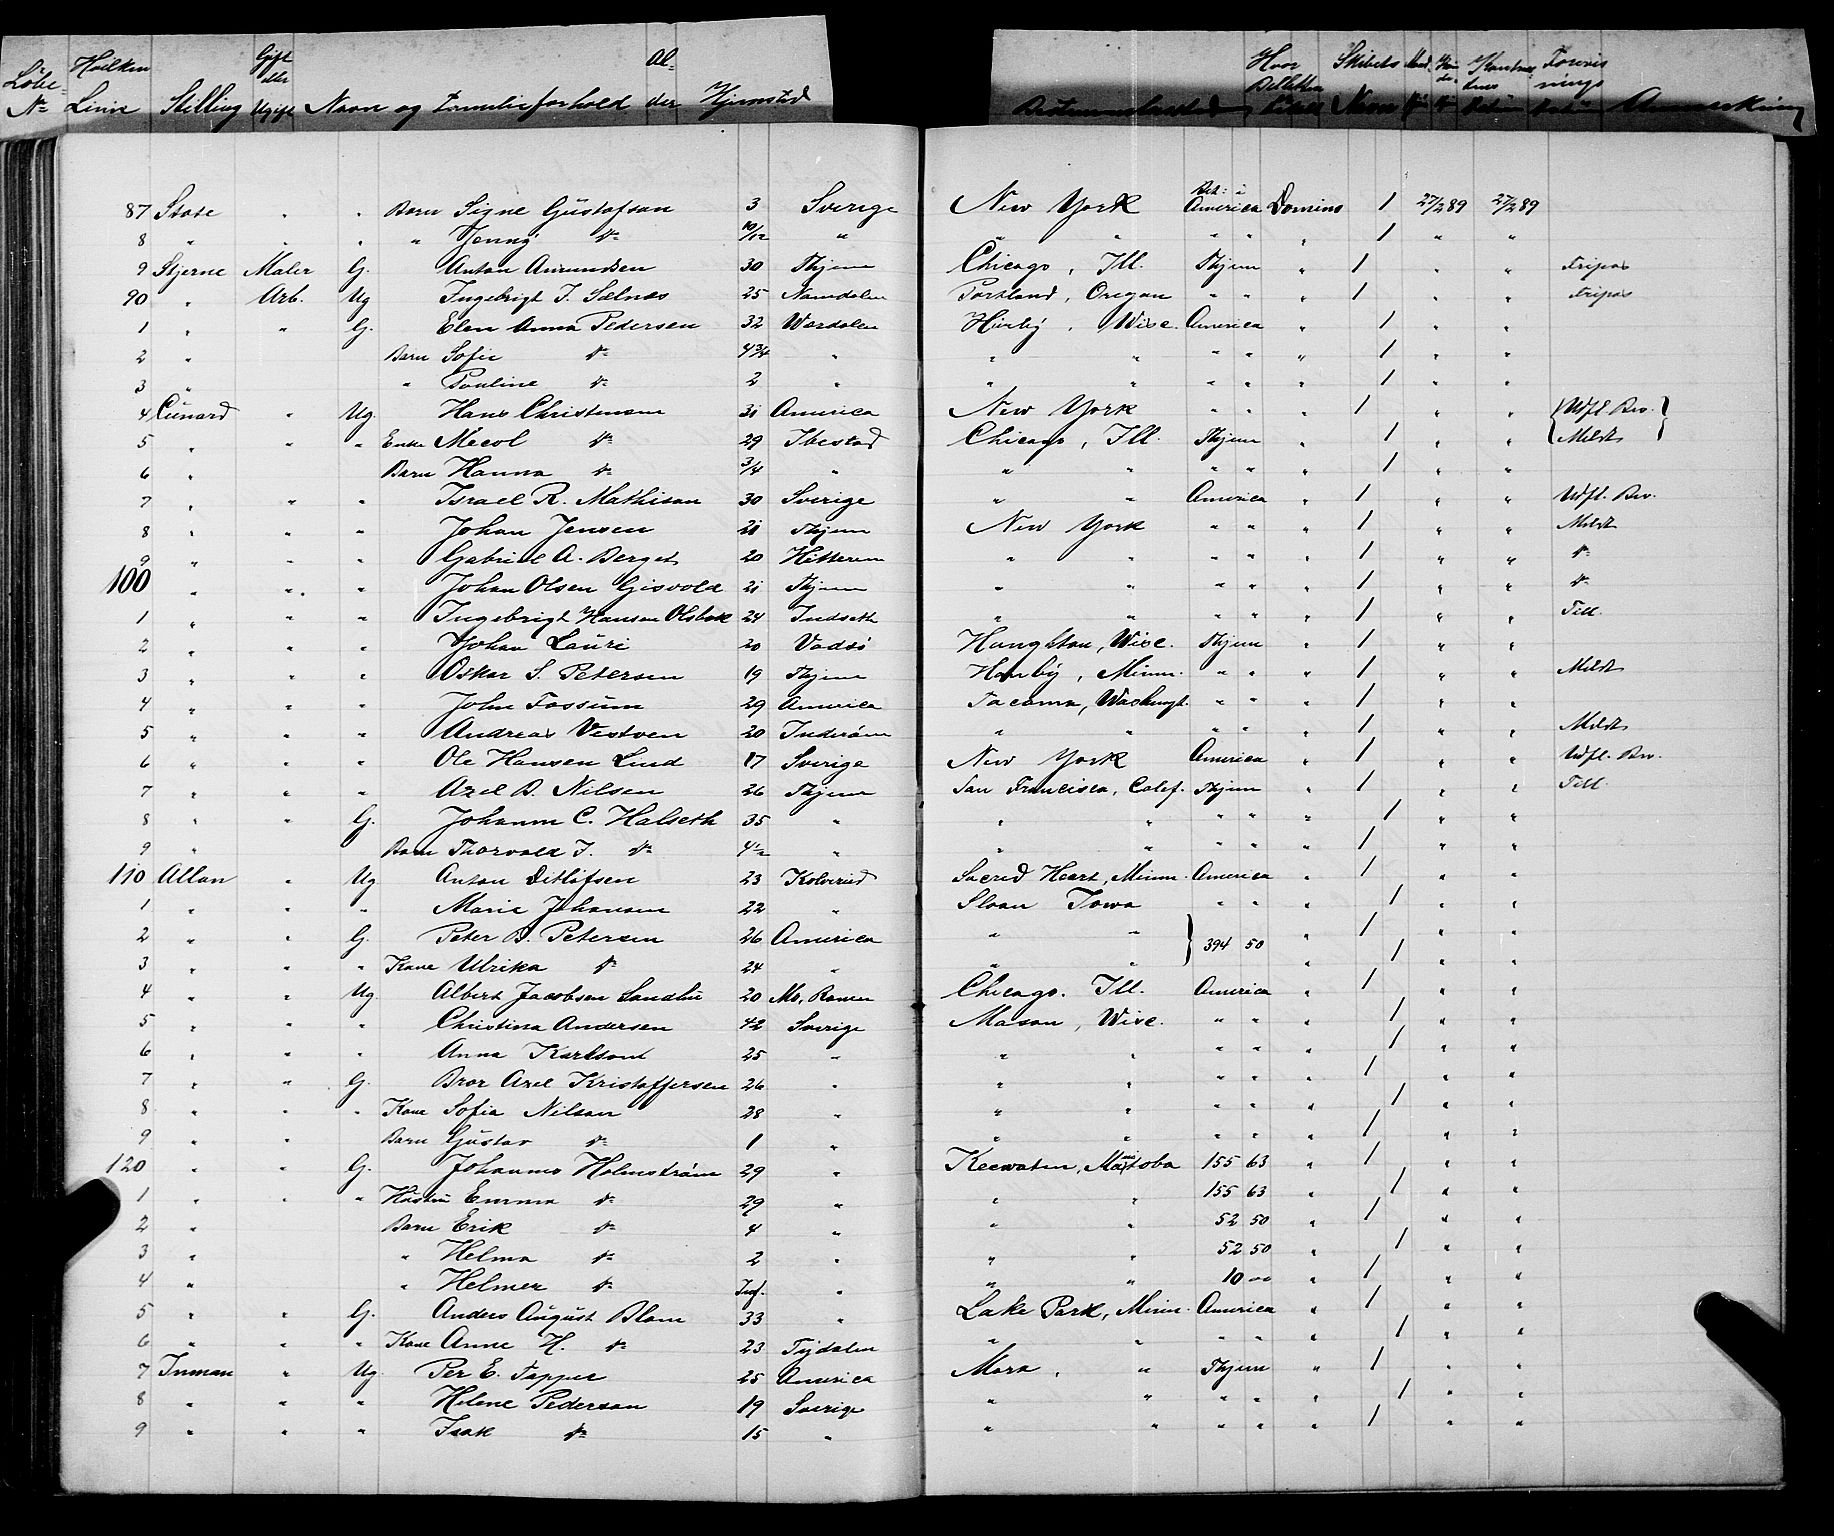 Löbe Nº Hvilken Linie Stilling Gift eller Ugift Navn og Familieforhold Alder Hjemsted Hvor Billetten Skibets Navn
87 State " " Barn Signe Gustafson 3 Sverige New York Bet: i America Domino 1 27/2 89 27/2 89
8 " " " " Jenny do 10/12 " " " " " " 1 " "
9 Stjerne Maler G. Anton Amundsen 30 Thjem Chicago, Ill. Thjem " 1 " " Fripas
90 " Arb. Ug Ingebrigt J. Selnes 25 Namdalen Portland, Oregon " " " 1 " " Fripas
1 " " G. Elen Anna Pedersen 32 Værdalen Hurley, Wisc. America " 1 " "
2 " Barn Sofie do 4 3/4 " " " " " " 1 " "
3 " " Pauline do 2 " " " " " " 1 " "
4 Cunard " Ug. Hans Christensen 31 America New York " " " 1 " " Udfl. Bev.
5 " " " Enke Mecol do 29 Ibestad Chicago, Ill. Thjem " 1 " " Meldt
6 " Barn Hanna do 3/4 " " " " " " 1 " "
7 " " " Israel R. Mathisen 30 Sverige " " America " 1 " " Udfl. Bev.
8 " " " Johan Jensen 21 Thjem New York " " " 1 " " Meldt
9 " " " Gabriel A. Berget 20 Hitteren " " " " " 1 " " do
100 " " " Johan Olsen Gisvold 21 Thjem " " " " " 1 " " do
1 " " " Ingebrigt Hansen Olsbak 24 Indseth " " " " " 1 " " Till.
2 " " " Johan Lauri 20 Vadsö Hanghton, Wisc. Thjem " 1 " "
3 " " " Oskar S. Petersen 19 Thjem Hanby, Minn. " " " 1 " " Meldt
4 " " " John Fossum 29 America Tacoma, Washingt. " " " 1 " "
5 " " " Andreas Vestven 20 Inderöen " " " " " 1 " " Meldt
6 " " " Ole Hansen Lund 17 Sverige New York America " 1 " " Udfl. Bev.
7 " " " Axel B. Nilsen 26 Thjem San Francisco, Calif. Thjem " 1 " " Till.
8 " " G. Johanna C. Halseth 35 " " " " " " 1 " "
9 " Barn Thorvald J. do 4 1/2 " " " " " " 1 " "
110 Allan " Ug Anton Detlofsen 23 Kolvereid Sacred Heart, Minn. America " 1 " "
1 " " " Marie Johansen 22 " Sloan Iowa " " " 1 " "
2 " " G. Peter B. Petersen 26 America " " } 394 50 " 1 " "
3 " " " Kone Ulrika do 24 " " " " 1 " "
4 " " Ug. Albert Jacobsen Sandlie 20 Mo, Ranen Chicago. Ill. America " 1 " "
5 " " " Christina Andersen 42 Sverige Mason, Wisc. " " " 1 " "
6 " " " Anna Karlsont 25 " " " " " " 1 " "
7 " " G. Bror Axel Kristoffersen 26 " " " " " " 1 " "
8 " " " Kone Sofia Nilson 28 " " " " " " 1 " "
9 " " Barn Gustav do 1 " " " " " " 1 " "
120 " " G. Johannes Holmström 29 " Keewaten, Manitoba 155 63 " 1 " "
1 " " " Hustru Emma do 29 " " " 155 63 " 1 " "
2 " Barn Erik do 4 " " " 52 50 " 1 " "
3 " " Helma do 2 " " " 52 50 " 1 " "
4 " " Helmer do Inf. " " " 10 00 " 1 " "
5 " " G. Anders August Blom 33 " Lake Park, Minn. America " 1 " "
6 " " " Kone Anne H. do 23 Tydalen " " " " " 1 " "
7 Inman " Ug Per E. Tapper 25 America Mora, " Thjem " 1 " "
8 " " " Helene Pederson 19 Sverige " " " " " 1 " "
9 " " " Isak do 15 " " " " " " 1 " "